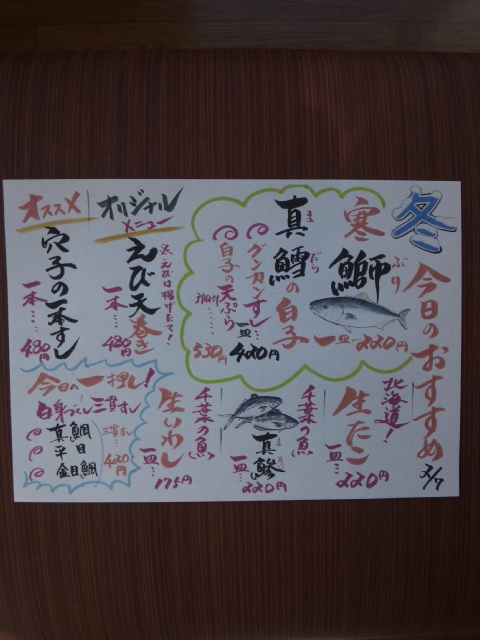 冬
今日のおすすめ
2/7
寒鰤
ぶり
一皿…220円
真鱈の白子
まだら
グンカンすし…
一皿 420円
白子の天ぷら
530円
北海道!
生たこ
一皿…220円
千葉の魚
真鯵
まあじ
一皿…220円
千葉の魚
生いわし
一皿…175円
オリジナルメニュー
えび天巻き
えびは揚げたて!
一本…480円
オススメ
穴子の一本すし
一本…480円
今日の一押し!
白身づくし三貫すし
真鯛
平目
金目鯛
三貫すし…420円